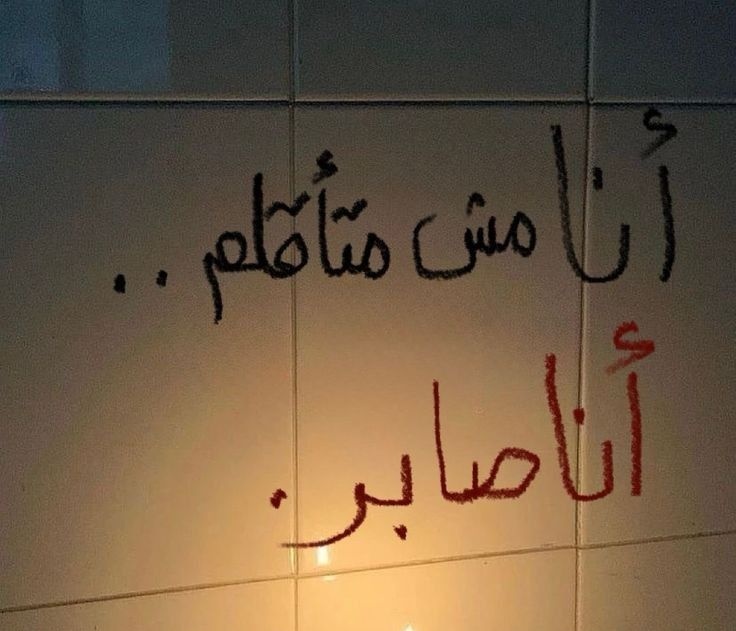 أنا مش متأقلم ..
أنا صابر .